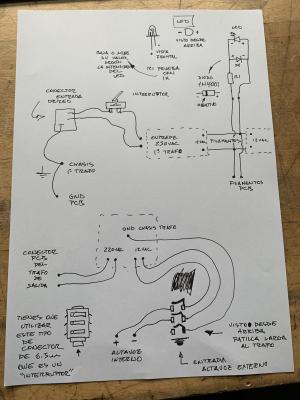 LED
VISTO DESDE
ARRIBA
LED
BAJA O SUBE
SU VALOR
SEGÚN
LA INTENSIDAD
DEL
LED
VISTA
FRONTAL
1K1 PRUEBA
CON
1K
DIODO
1N4001
1K1
CONECTOR
ENTRADA
INTERRUPTOR
ENTRADA
230VAC
TRAFO
FILAMENTOS
12VAC
CHASIS
TRAFO
GND
PCB
FILAMENTOS
PCB
GND CHASIS TRAFO
CONECTOR
PCB
DEL
TRAFO
DE
SALIDA
220VAC
12VAC
TIENES QUE
UTILIZAR
ESTE TIPO
DE
CONECTOR
DE 6.3mm
QUE ES UN
"INTERRUPTOR"
+
-
ALTAVOZ
INTERNO
VISTO DESDE
ARRIBA
PATILLA LARGA
AL TRAFO
ENTRADA
ALTAVOZ EXTERNO